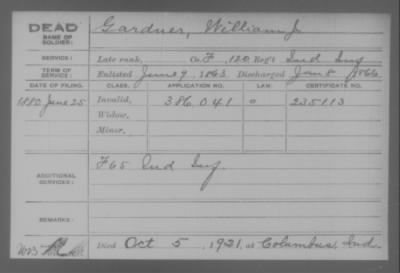 DEAD
NAME OF SOLDIER:
Gardner, William J
SERVICE:
Late rank, Co. F, 120 Reg't Ind Inf
TERM OF SERVICE:
Enlisted June 9, 1863 Discharged Jan 8, 1866
DATE OF FILING. CLASS. APPLICATION NO. LAW. CERTIFICATE NO.
1880 June 25 Invalid, 386.041 0 235113
Widow,
Minor,
ADDITIONAL SERVICES:
F 65 Ind Inf.
REMARKS:
Died Oct 5, 1921, at Columbus, Ind.